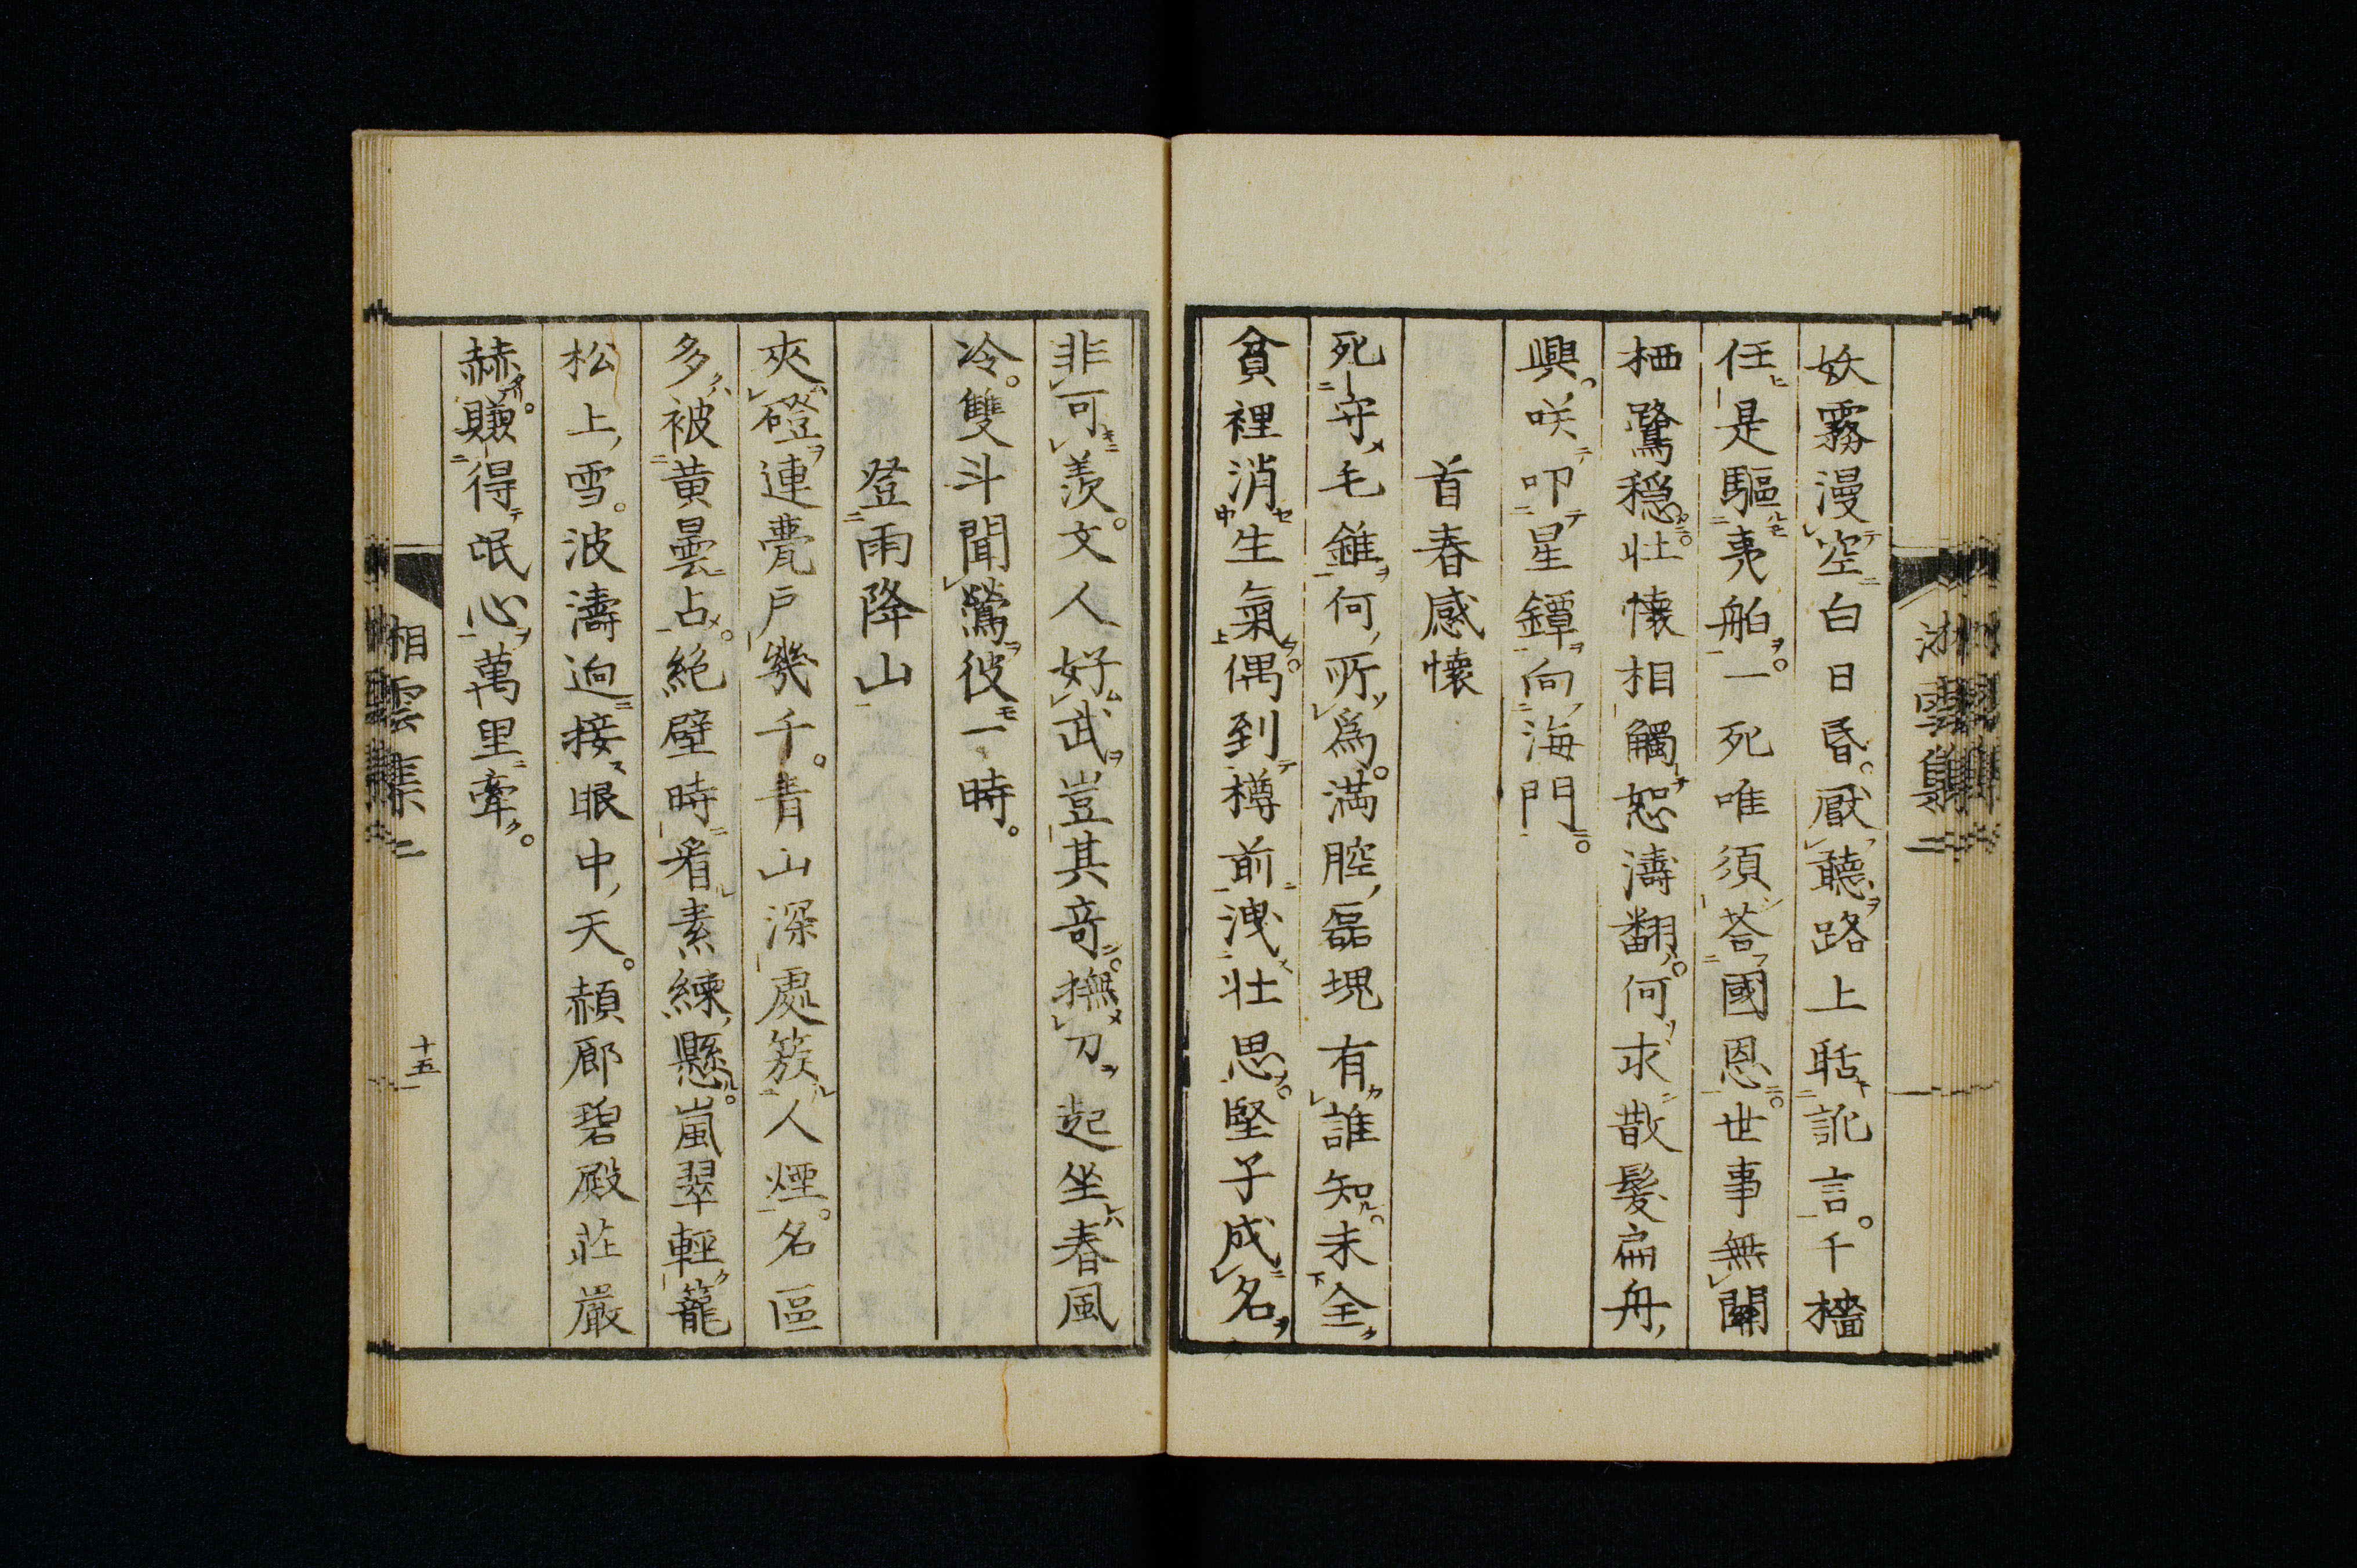 妖霧漫空白日昏。厭聽路上聒訛言。千檣
任是驅夷舶。一死唯須荅國恩。世事無關
栖鷺穏。壮懐相觸怒濤翻。何求散髮扁舟
興。咲叩星鐔向海門。
首春感懐
死守毛錐何所爲。満腔磊塊有誰知。未全
貧裡消生氣。偶到樽前洩壮思。堅子成名
非可羨。文人好武豈其竒。撫刀起坐春風
冷。雙斗聞鶯彼一時。
登雨降山
夾磴連甍戸幾千。青山深處簇人煙。名區
多被黄曇占。絶壁時看素練懸。嵐翠輕籠
松上雪。波濤逈接眼中天。頳廊碧殿荘厳
赫。賺得氓心萬里牽。
湘雲集 二
十五